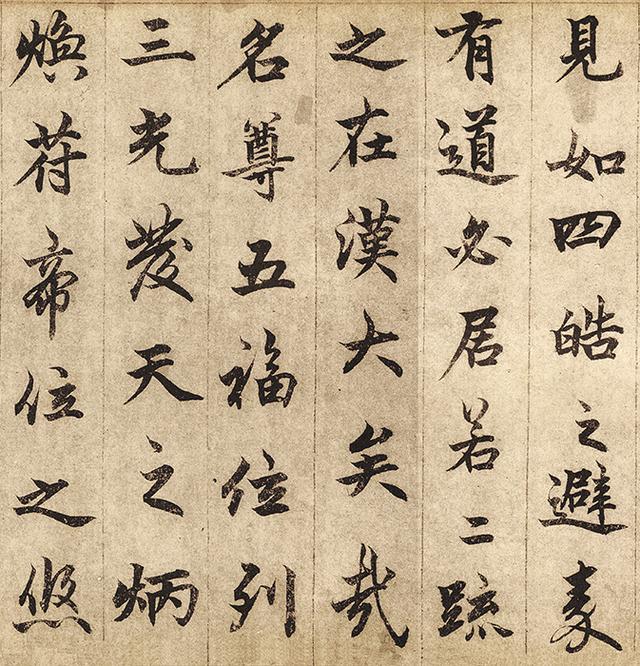 見如四皓之避秦
有道必居若二疏
之在漢大矣哉
名尊五福位列
三光發天之炳
煥苻帝位之悠